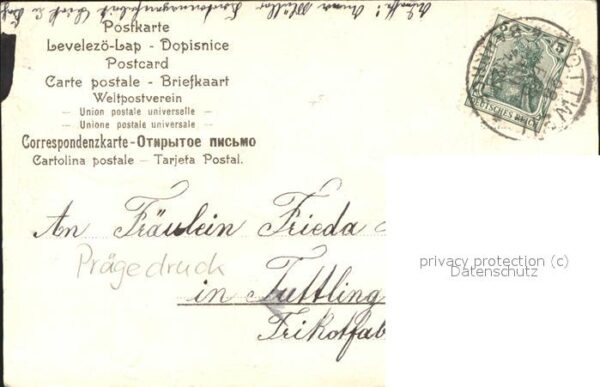 Postkarte
Levelező-Lap - Dopisnice
Postcard
Carte postale - Briefkaart
Weltpostverein
— Union postale universelle —
— Unione postale universale —
Correspondenzkarte-Открытое письмо
Cartolina postale — Tarjeta Postal.
DEUTSCHES REICH
An Fräulein Frieda
Prägedruck
in Tuttling
Trikotfab
privacy protection (c)
Datenschutz